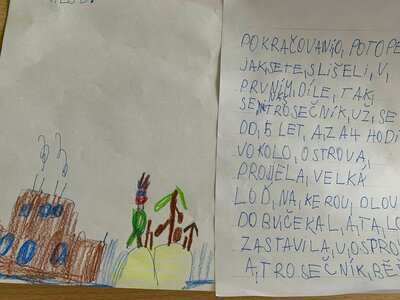 POKRAČOVANÍO, POTOPE
JAK,SETE,SLIŠELI,V,
PRVNÍM,DÍLE,TAK,
SE NÁŠ TROSEČNÍK,UZ,SE
DO,5 LET,A ZA 4 HODI
VOKOLO,OSTROVA,
PROJELA,VELKÁ
LOĎ,NA,KEROU,DLOU
DOBUČEKAL,A TA,LO
ZASTAVILA,U,OSTROV
A,TROSEČNÍK,BĚ